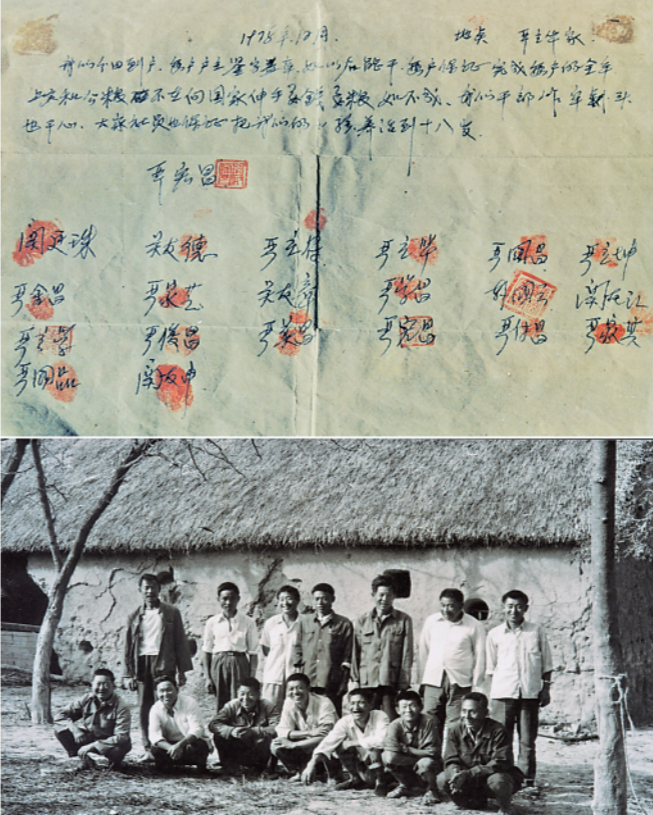 1978年12月. 地点 严立华家.
我们分田到户，每户户主签字盖章，如以后能干，每户保证完成每户的全年
上交和公粮，不在向国家伸手要钱要粮，如不成，我们干部作牢刹头
也干心，大家社员也保证把我们的小孩养活到十八岁.
严宏昌
関廷珠 关友德 严立符 严立华 严国昌 严立坤
严金昌 严家芝 关友章 严学昌 韩国云 関友江
严立学 严俊昌 严美昌 严宏昌 严付昌 严家其
严国品 関友申